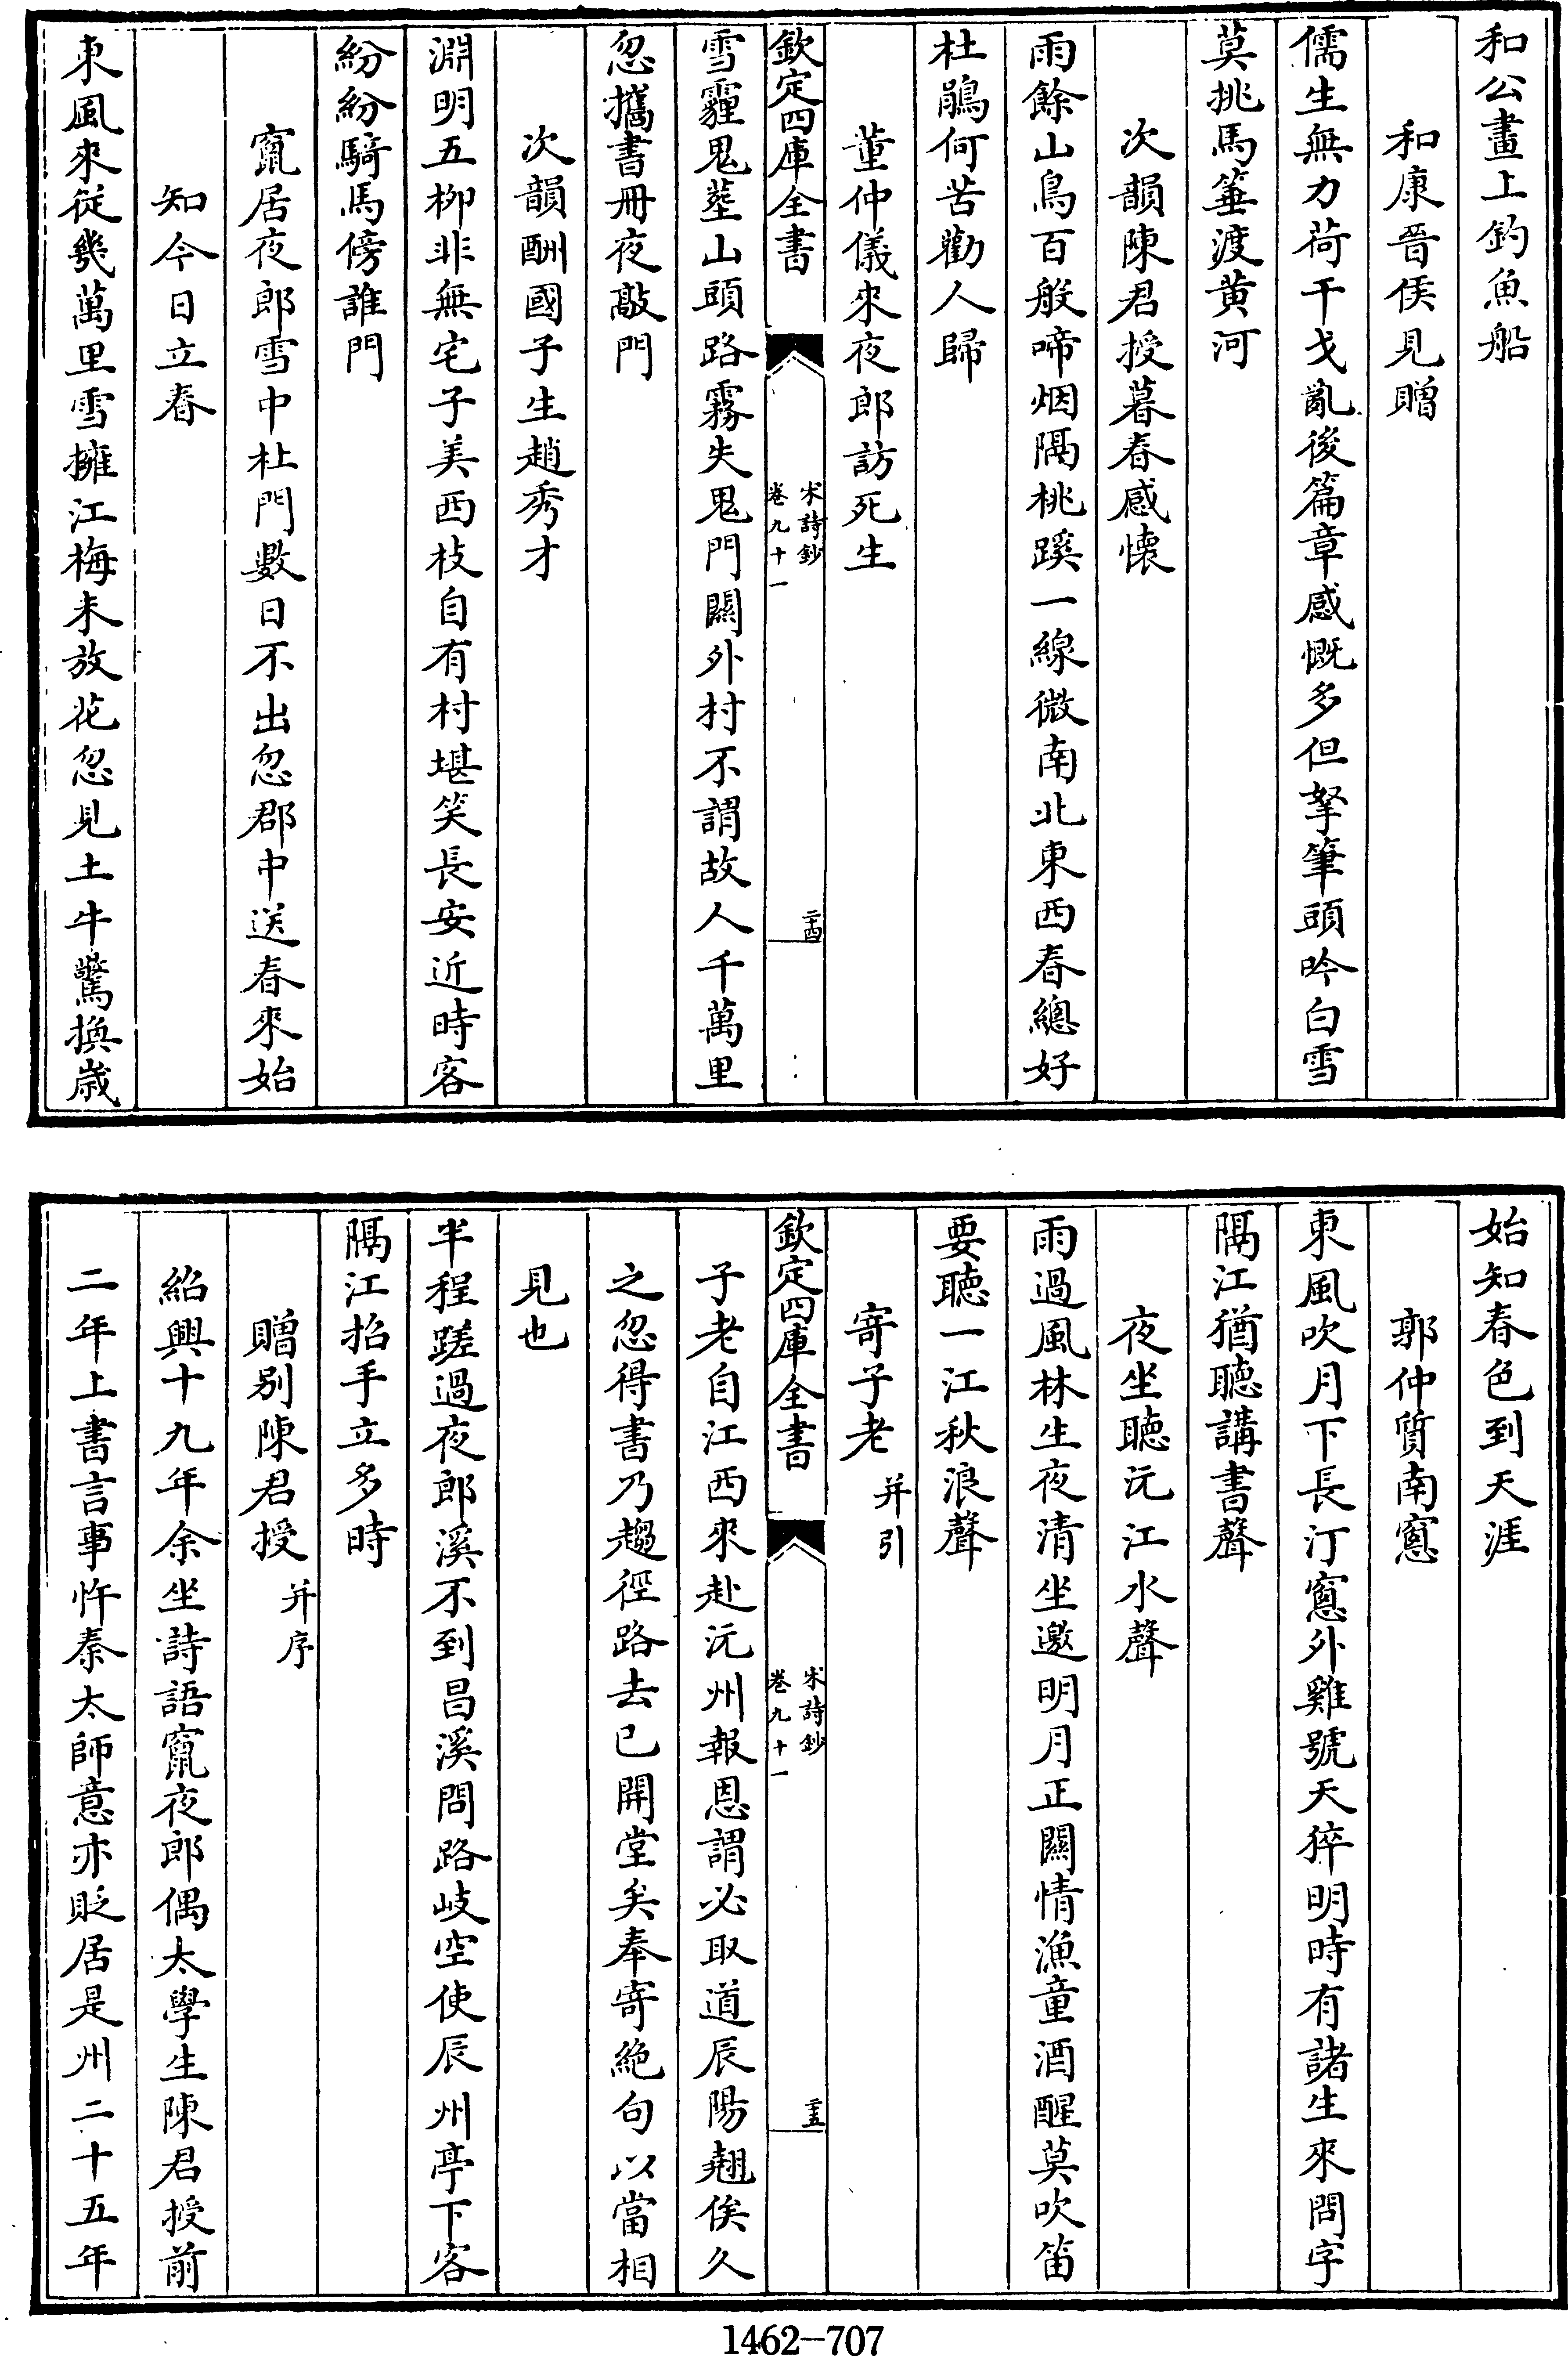 和公畫上釣魚船
和康晉侯見贈
儒生無力荷干戈亂後篇章感慨多但拏筆頭吟白雪
莫挑馬箠渡黄河
次韻陳君授暮春感懷
雨餘山鳥百般啼烟隔桃蹊一線微南北東西春總好
杜鵑何苦勸人歸
董仲儀來夜郎訪死生
欽定四庫全書
宋詩鈔
卷九十一
二十四
雪霾鬼塟山頭路霧失鬼門關外村不謂故人千萬里
忽攜書冊夜敲門
次韻酬國子生趙秀才
淵明五柳非無宅子美西枝自有村堪笑長安近時客
紛紛騎馬傍誰門
竄居夜郎雪中杜門數日不出忽郡中送春來始
知今日立春
東風來從幾萬里雪擁江梅未放花忽見土牛驚換歲
始知春色到天涯
郭仲質南窻
東風吹月下長汀窻外雞號天猝明時有諸生來問字
隔江猶聽講書聲
夜坐聽沅江水聲
雨過風林生夜清坐邀明月正關情漁童酒醒莫吹笛
要聽一江秋浪聲
寄子老并引
欽定四庫全書
宋詩鈔
卷九十一
二十五
子老自江西來赴沅州報恩謂必取道辰陽翹俟久
之忽得書乃趨徑路去已開堂矣奉寄絶句以當相
見也
半程蹉過夜郎溪不到昌溪問路岐空使辰州亭下客
隔江招手立多時
贈别陳君授并序
紹興十九年余坐詩語竄夜郎偶太學生陳君授前
二年上書言事忤秦太師意亦貶居是州二十五年
1462-707